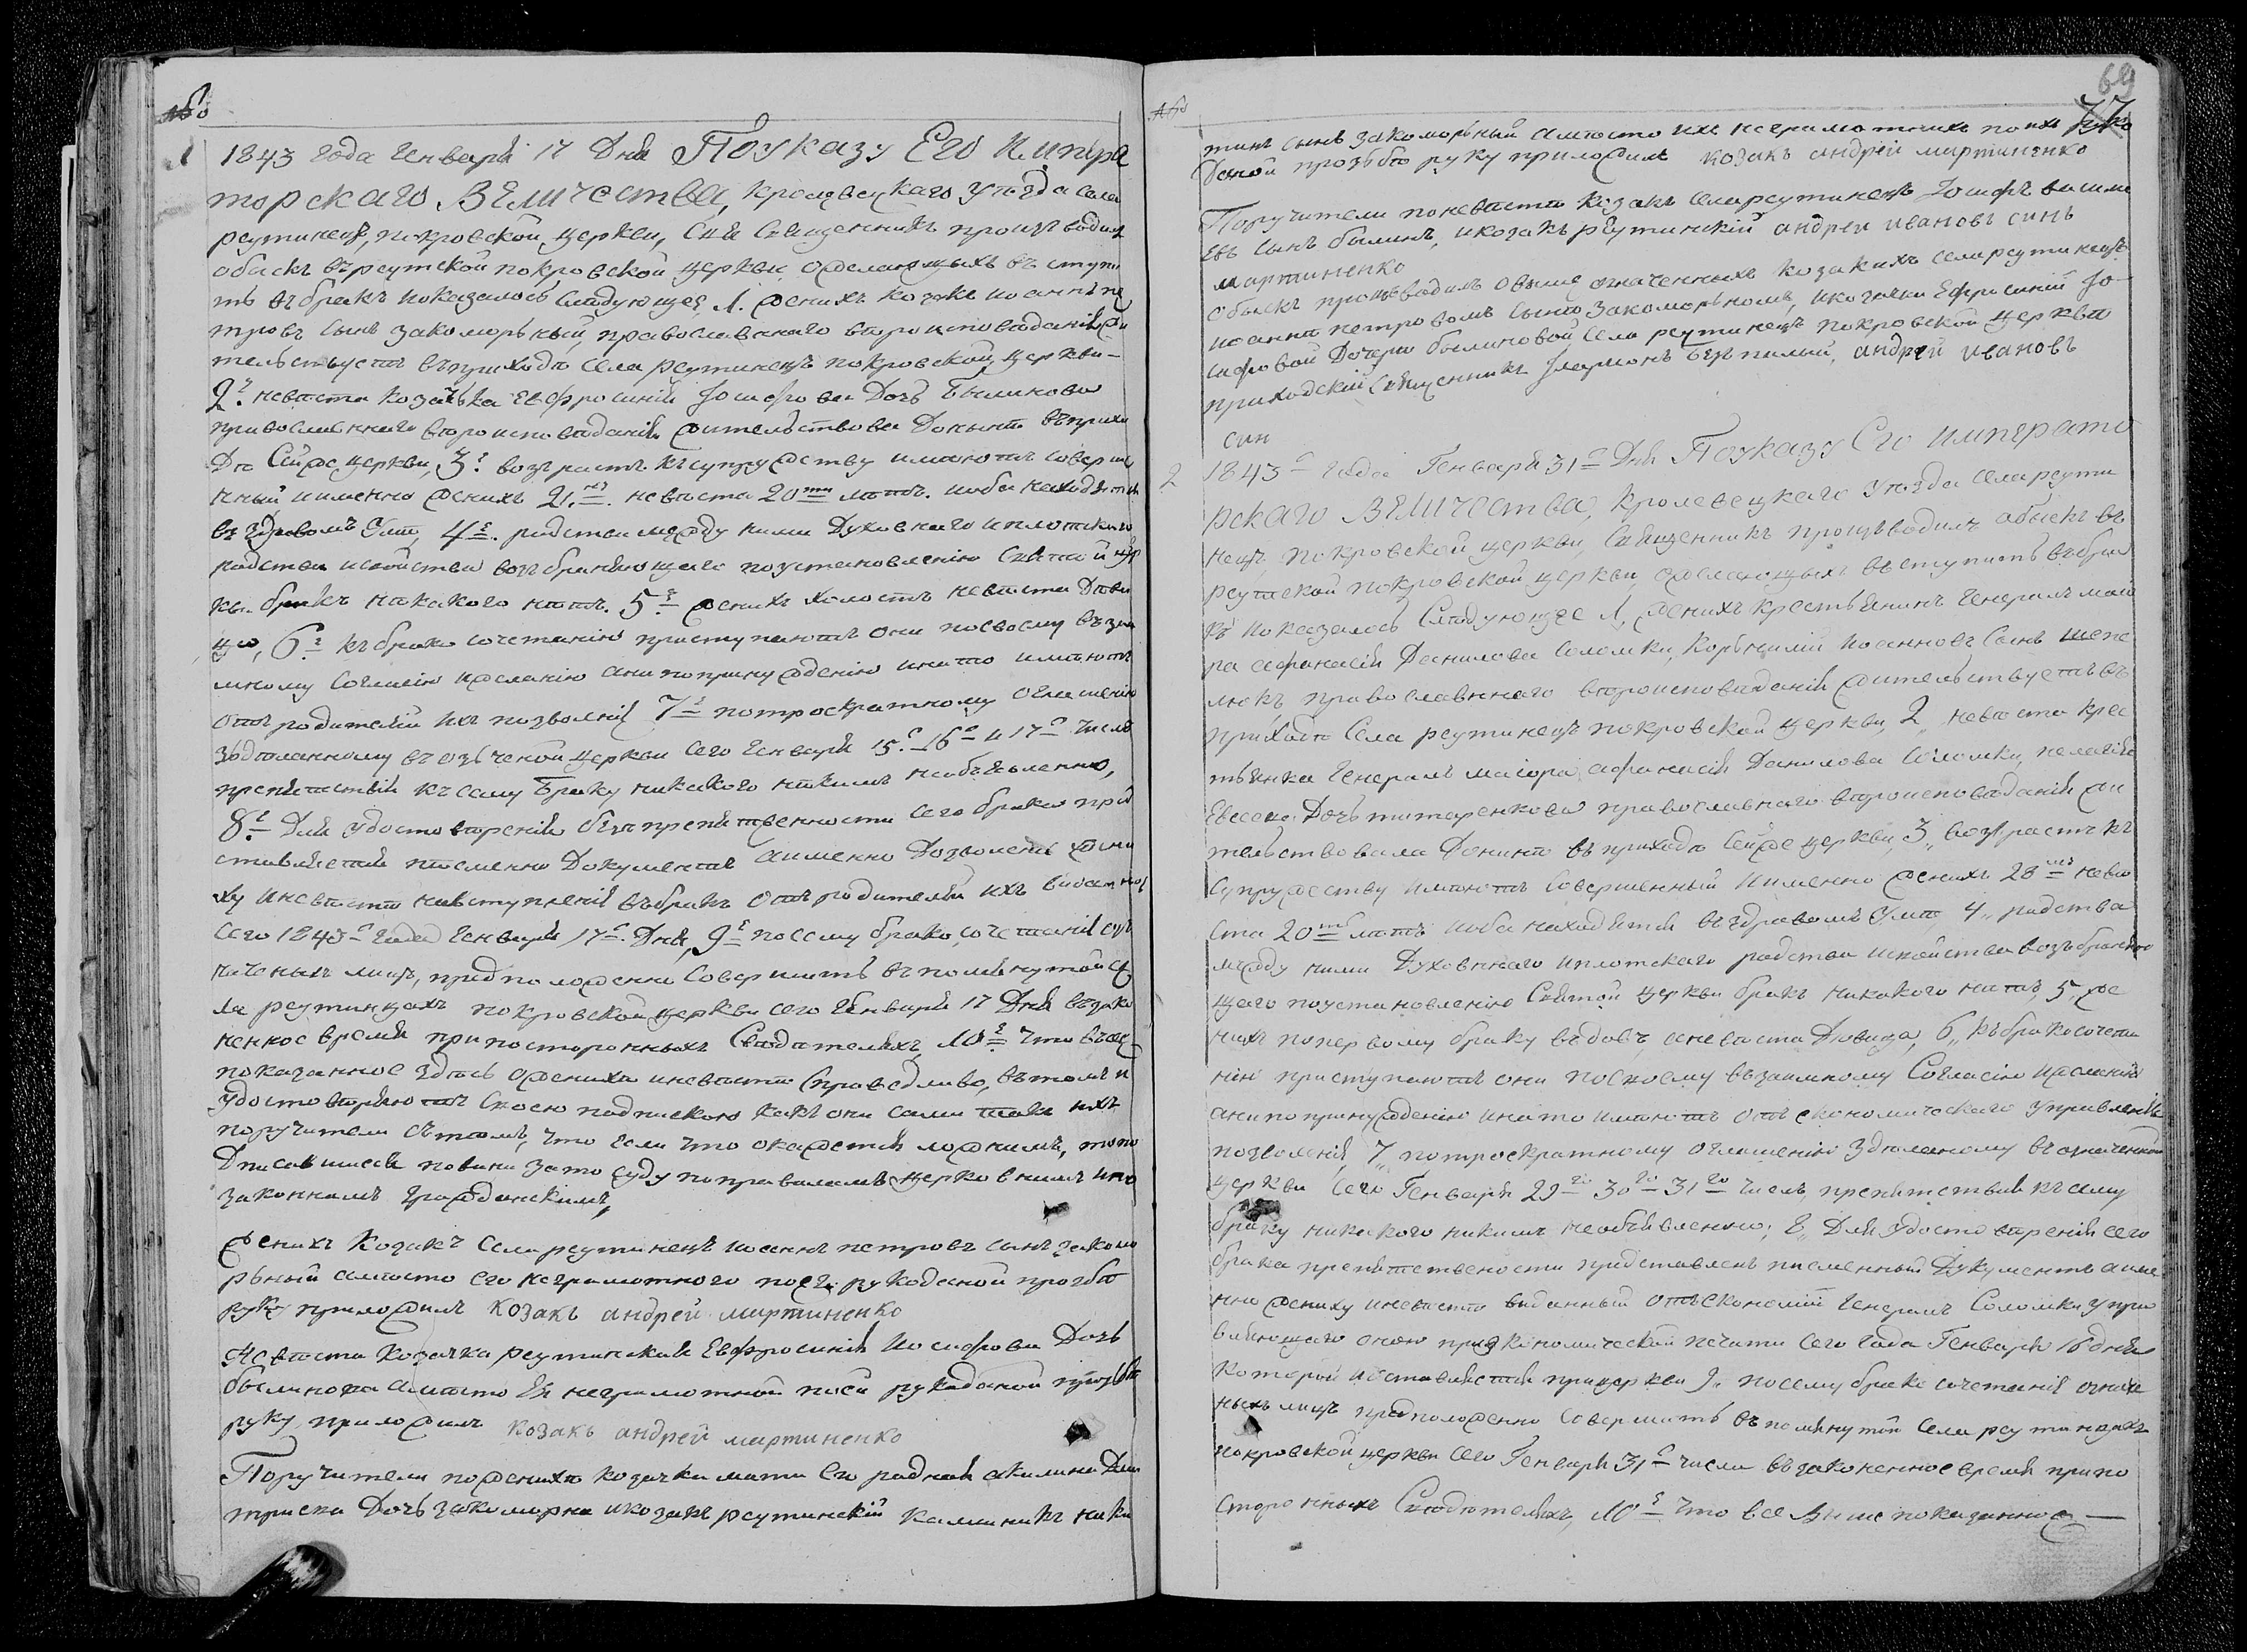 №
1
1843 года Генваря 17 Дня По указу Его Импера
торскаго Величества, кролевецкаго уѣзда села
реутинецъ, покровской церкви, Священникъ произъводилъ
обыскъ въ реутской покровской церкви о желающыхъ въ ступи
ть въ бракъ и оказалось слѣдующее, 1. женихъ козакъ иоаннъ пе
тровъ сынъ закоморьный, православнаго вѣроисповѣданія жи
тельствуетъ въ приходѣ села реутинецъ покровской церкви-
2е. невѣста козачька Евфросинія Иосифова Дочь Былинова
православнаго вѣроисповѣданія жительствовала Донынѣ въ прихо
дѣ Сей же церкви, 3е. возърастъ къ супружеству имѣютъ соверше
нный и именно женихъ 21. невѣста 20ти лѣтъ. и оба находятся
въ здравомъ Умѣ, 4е. родства между ними Духовнаго и плотскаго
родства и свойства возъбраняющаго по установленію Святой цер
кви бракъ никакого нѣтъ. 5е женихъ холостъ невѣста Деви
ца, 6е къ брако сочетанію приступаютъ они по своему взаи
мному согласію и желанію а не по принужденію и на то имѣютъ
отъ родителей ихъ позволеніе 7е по троекратному оглашенію
здѣланному въ означеной церкви сего Генваря 15го 16го и 17го числѣ
препятствія къ сему Браку никакого никимъ необъявленно,
8е Для удостовѣренія безпрепятственности сего брака при
ставляется писменны Документъ а именно Дозволеніе жени
ху и невѣстѣ на вступленія въ бракъ отъ родителей ихъ
сего 1843го года Генваря 17го Дня, 9е по сему брако, сочетанія озъ
наченыхъ лицъ, предположенно Совершить въ помянутой се
ла реутинцахъ покровской церкви сего Генваря 17 Дня въ зако
ненное время при постороннихъ Свѣдѣтеляхъ, 10е Что все
показанное здѣсь о женихѣ и невѣстѣ справедливо, въ томъ и
удостовѣряютъ Своею подпискою какъ они сами такъ ихъ
поручители съ тѣмъ, что если что окажется ложнимъ, то по
Дписавшиеся повинн за то суду по правиламъ церковнимъ и по
законнамъ гражданскимъ,
Женихъ Козакъ села реутинецъ иоаннъ петровъ сынъ закомо
рьный а вмѣсто его неграмотного по его рукоданой прозбѣ
руку приложилъ козакъ андрей мартиненко
Невѣста козачка реутинская Евфросинія Иосифова Дочь
былинова а вмѣсто Ея неграмотной по еи рукоданой прозьбѣ
руку приложилъ козакъ андрей мартиненко
Поручители по женихѣ козачка мати Его родная акилина Дми
триева Дочь закоморна и козакъ реутинскій калиникъ ники
№
69
77
тинъ сынъ закоморьный а вмѣсто ихъ неграмотнихъ по ихъ руко
Даной прозьбѣ руку приложилъ козакъ андрей мартиненко
Поручители по невѣстѣ козакъ села реутинецъ Иосифъ василие
въ сынъ былинъ, и козакъ реутинскій андрей ивановъ синъ
мартиненко
обыскъ произъводилъ о выше означенныхъ козакахъ села реутинецъ
иоаннѣ петровомъ сынѣ закоморьномъ, и козачки Ефросиніи Ио-
сифовой Дочери былиновой, села реутинецъ покровской церкви
приходскій Священникъ андрей ивановъ
син
2
1843го года Генваря 31го Дня По указу Его Императо
рскаго Величества, кролевецкаго Уѣзда села реути
нецъ покровской церкви, Священникъ произъводилъ обыскъ въ
реутской покровской церкви, о желающыхъ въ ступить въ бра
къ и оказалось Слѣдующее 1, женихъ крестьянинъ генералъ маио
ра афанасія Данилова Соломки, Корьнилій иоанновъ Сынъ шепе
люкъ православннаго вѣроисповѣданія жительствуетъ въ
приходѣ Села реутинецъ покровской церкви, 2, невѣста крес
тьянка Генералъ маиора афанасія Данилова Соломки, пелагія
Евсеева Дочь титаренкова православнаго вѣроисповѣданія жи
тельствовала Донинѣ въ приходѣ Сей же церкви, 3, возрастъ къ
Супружеству имѣютъ Совершенный и именно женихъ 28 невѣ
ста 20ти лѣтъ и оба находятся въ здравомъ Умѣ, 4, родства
между ними Духовннаго и плотскаго родства и свойства возъбраняю
щаго по установленію Святой церкви бракъ никакого нѣтъ, 5, же
нихъ по первому браку въдовъ, а невѣста Девица, 6, къ брако сочета
нію приступаютъ они по своему възаимному Согласію и желанію
а не по принужденію и на то имѣютъ отъ економическаго управленія
позволенія, 7, по троекратному оглашенію здѣланому въ означенной
церкви сего Генваря 29го 30го 31го числъ, препятствія къ сему
браку никакого никимъ необъявленно; 8, Для удостовѣренія сего
брака препятствености представленъ писменный Документъ а име
нно жениху и невѣстѣ виданный отъ економіи Генерала Соломки упра
вляющаго оною при економической печати сего года Генваря 16 дня
которой и оставляется при церкви 9, по сему брако сочетанія означе
ныхъ лицъ предположенно совершить въ помянутой села реутинцахъ
покровской церкви сего Генваря 31го числа въ законенное время при по
сторонныхъ Свѣдѣтеляхъ, 10е что все выше показанное —